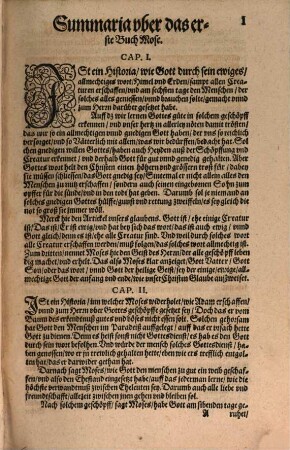 Summaria vber das er-
ste Buch Mose.
1
CAP. I.
ISt ein Historia / wie Gott durch sein ewiges /
allmechtigs wort / Himel vnd Erden / sampt allen Crea-
turen erschaffen / vnd am sechsten tage den Menschen / der
solches alles geniessen / vnd brauchen solte / gemacht vnnd
zum Herrn darüber gesetzt habe.
Auß diß wir lernen Gottes güte in solchem geschöpff
erkennen / vnd vnser hertz in allerley nöten damit trösten /
das wir so ein allmechtigen vnnd gnedigen Gott haben / der vns so reichlich
versorget / vnd so Väterlich mit allem / was wir bedürffen / bedacht hat. Sol
chen gnedigen willen Gottes / haben auch Heyden auß der Schöpffung vnd
Creatur erkennet / vnd derhalb Gott für gut vnnd gnedig gehalten. Aber
Gottes wort hebt den Christen einen höhern vnd grössern trost für / daben
sie müssen schliessen / das Gott gnedig sey / Sintemal er nicht allein alles dem
Menschen zu nutz erschaffen / sondern auch seinen eingebornen Sohn zum
opffer für die sünde / vnd in den todt hat geben. Darumb sol je niemand an
solches gnedigen Gottes hülffe / gunst vnd rettung zweiffeln / es sey gleich die
not so groß sie immer wöll.
Merck hie den Artickel vnsers glaubens. Gott ist / ehe einige Creatur
ist / Das ist / Er ist ewig / vnd hat bey sich das wort / das ist auch ewig / vnnd
Gott gleich / denn es ist / ehe alle Creatur sind. Vnd weil durch solches wort
alle Creatur erschaffen werden / muß folgen / das solches wort allmechtig ist.
Zum dritten / nennet Moses hie den Geist des Herrn / der alle geschöpff leben
dig machet / vnd erhelt. Das also Moses klar anzeiget / Gott Vatter / Gott
Son / oder das wort / vnnd Gott der heilige Geist / sey der einige / ewige / all-
mechtige Gott der anfang vnd ende / wie vnser Christlich Glaube außweiset.
CAP. II.
ISt ein Historia / inn welcher Moses widerholet / wie Adam erschaffen /
vnnd zum Herrn vber Gottes geschöpffe gesetzt sey / Doch das er vom
Baum des erkentnuß gutes vnd böses nicht essen sol. Solchen gehorsam
hat Gott den Menschen im Paradeiß auffgelegt / auff das er wüsst hette
Gott zu dienen. Denn es heist sonst nicht Gottesdienst / es hab es dem Gott
durch sein wort befolhen. Vnd würde der mensch solches Gottesdienst / ha-
ben genossen / wo er jn trewlich gehalten hette / eben wie ers trefflich entgol-
ten hat / das er darwider gethan hat.
Darnach sagt Moses / wie Gott den menschen zu gut ein weib geschaf-
fen / vnd also den Ehestand eingesetzt habe / auff das jederman lerne / wie die
höchste verwandtnuß zwischen Eheleuten sey. Darumb auch alle liebe vnd
freundtschafft / alleyt zwischen jnen gehen vnd bleiben sol.
Nach solchem geschöpff / sagt Moses / habe Gott am sibenden tage ge-
A ruhet /